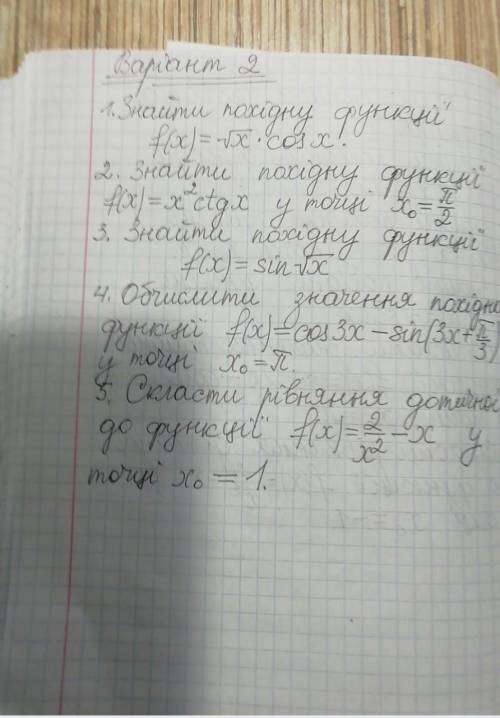 Варіант 2
1. Знайти похідну функції
f(x)=√x·cosx.
2. Знайти похідну функції
f(x)=x²ctgx у точці x₀=π/2
3. Знайти похідну функції
f(x)=sin√x
4. Обчислити значення похідн
функції f(x)=cos3x-sin(3x+π/3)
у точці x₀=π.
5. Скласти рівняння дотичної
до функції f(x)=2/x²-x у
точці x₀=1.